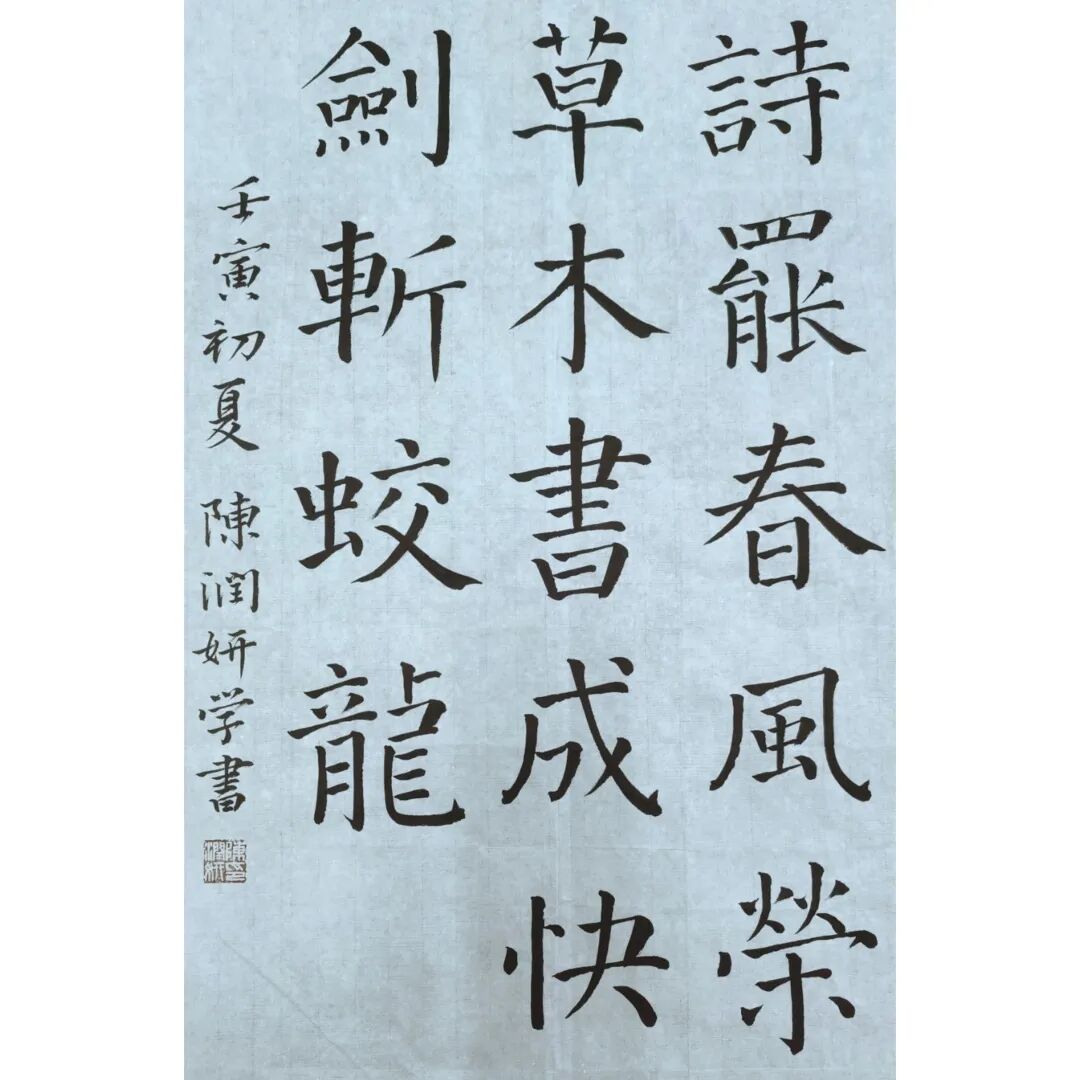 詩罷春風榮
草木書成快
劍斬蛟龍
壬寅初夏 陳潤妍学書
陳印潤妍